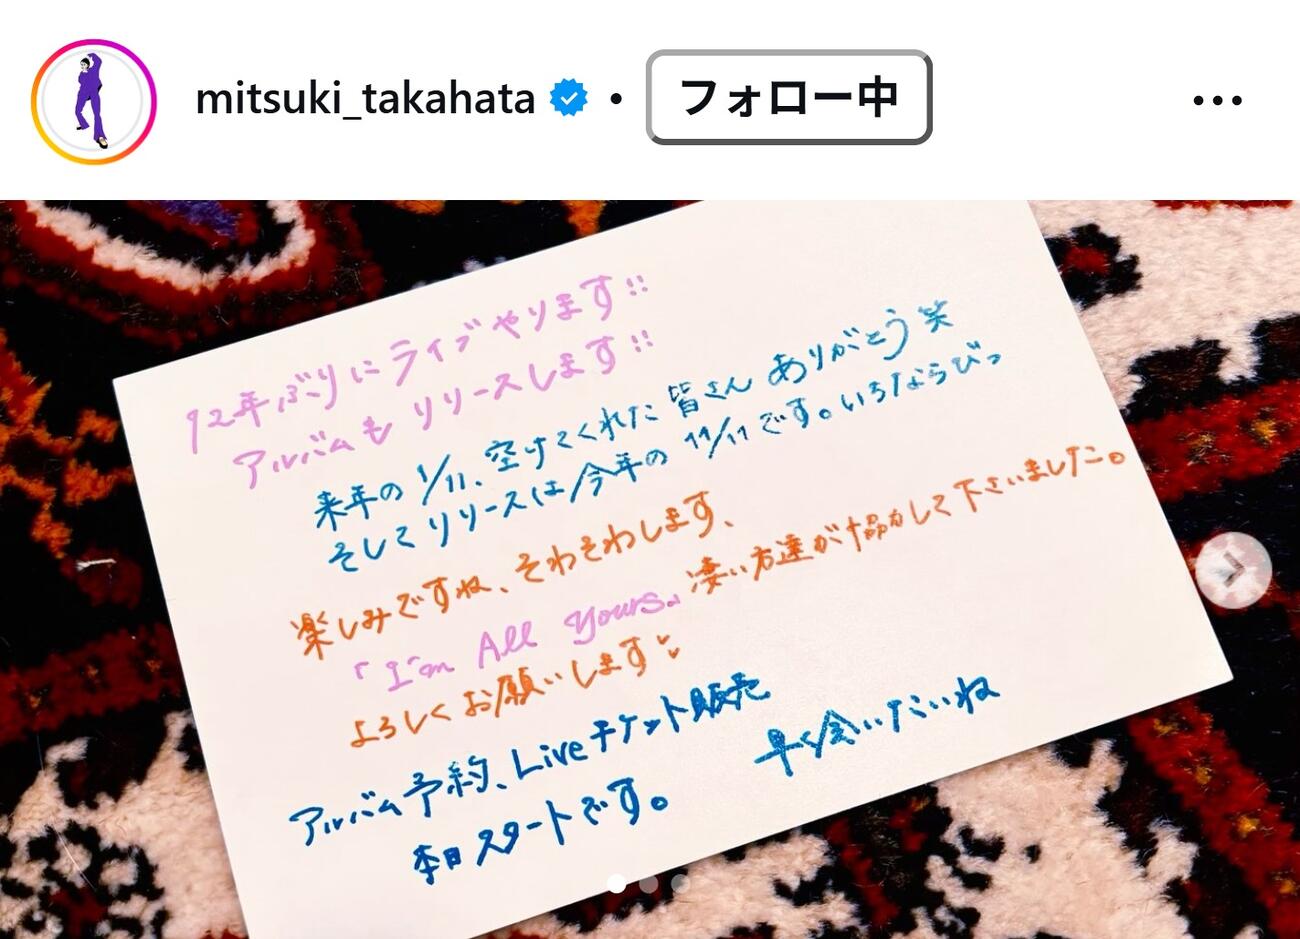 mitsuki_takahata • フォロー中
12年ぶりにライブやります!!
アルバムもリリースします!!
来年の1/11、空けてくれた皆さんありがとう笑
そしてリリースは今年の11/11です。いちならびっ
楽しみですね、そわそわします、
「I'm All Yours」凄い方達が協力して下さいました。
よろしくお願いします
アルバム予約、Liveチケット販売
本日スタートです。
早く会いたいね